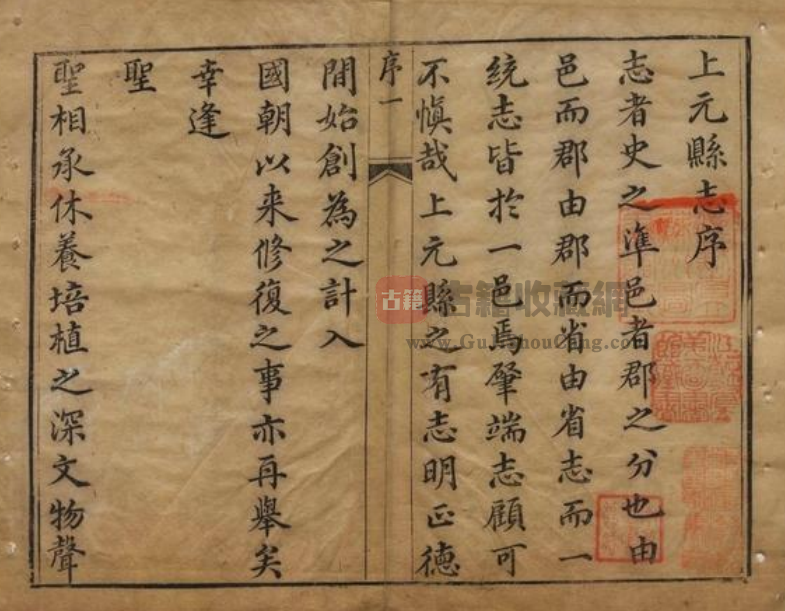 上元縣志序
志者史之準邑者郡之分也由
邑而郡由郡而省由省志而一
統志皆於一邑焉肇端志顧可
不慎哉上元縣之有志明正德
序一
間始創為之計入
國朝以来修復之事亦再舉矣
幸逢
聖
聖相承休養培植之深文物聲
古籍
古籍收藏網
www.GujiShouCang.com